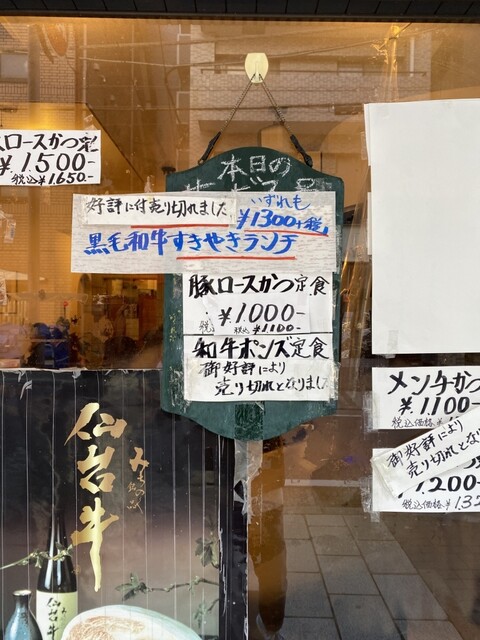 ロースかつ定
¥1.500-
税込¥1.650-
本日の
好評に付売り切れました
いずれも
¥1300+税
黒毛和牛すきやきランチ
豚ロースかつ定食
¥1000-
税込 ¥1.100-
和牛ポンズ定食
御好評により
売り切れとなりました
メンチかつ
¥1.100-
税込価格
御好評により
売り切れとな
1.200-
税込価格¥132
仙台牛
みちのく
仙台牛